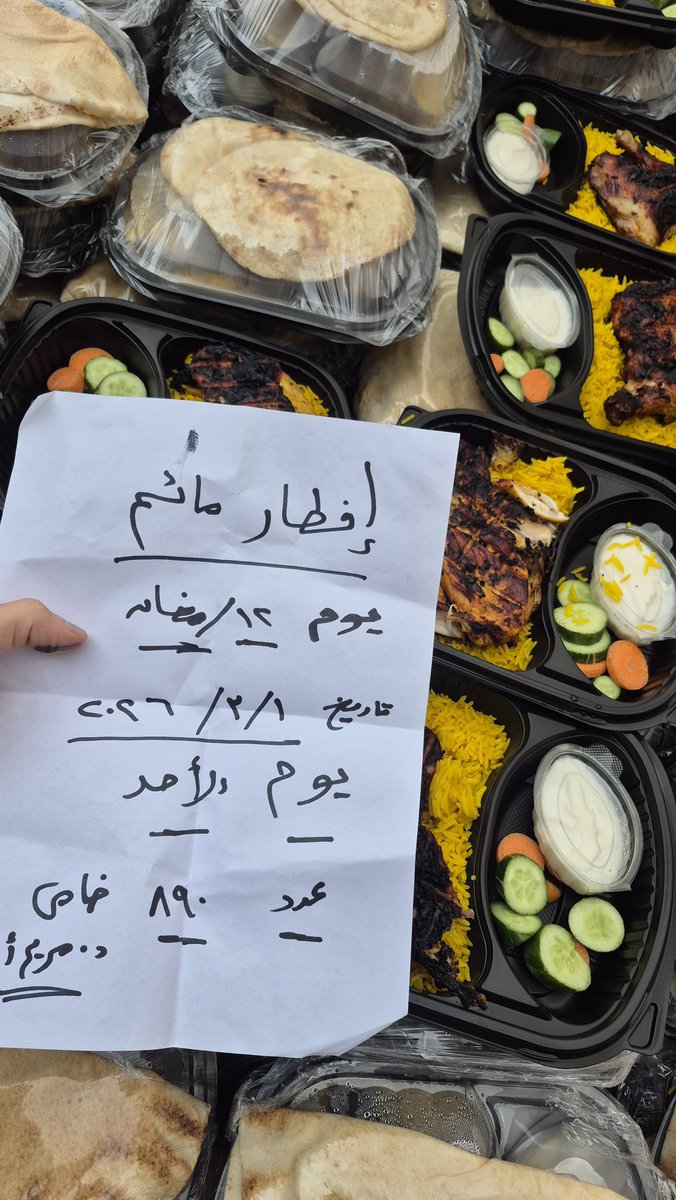 إفطار صائم
يوم ١٢/رمضان
تاريخ ١/٣/٢٠٢٦
يوم الأحد
عدد ٨٩٠ خاص
د. مريم أ